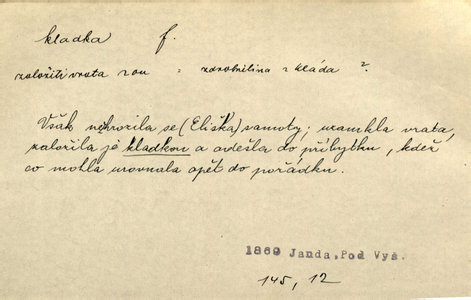 kladka f.
založiti vrata zou = zdrobnělina z kláda ?
Však nehrozila se (Eliška) samoty; uzamkla vrata,
založila je kladkou a odešla do příbytku, kdež
co mohla urovnala opět do pořádku.
1869 Janda, Pod Vyš.
145, 12